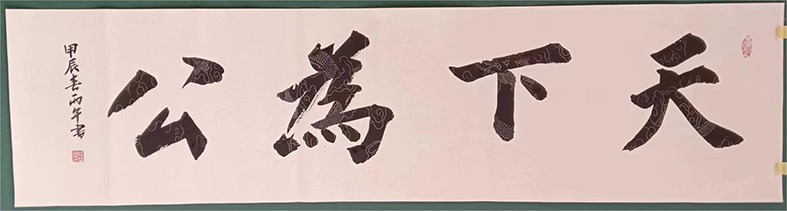 天下為公
甲辰春丙午書